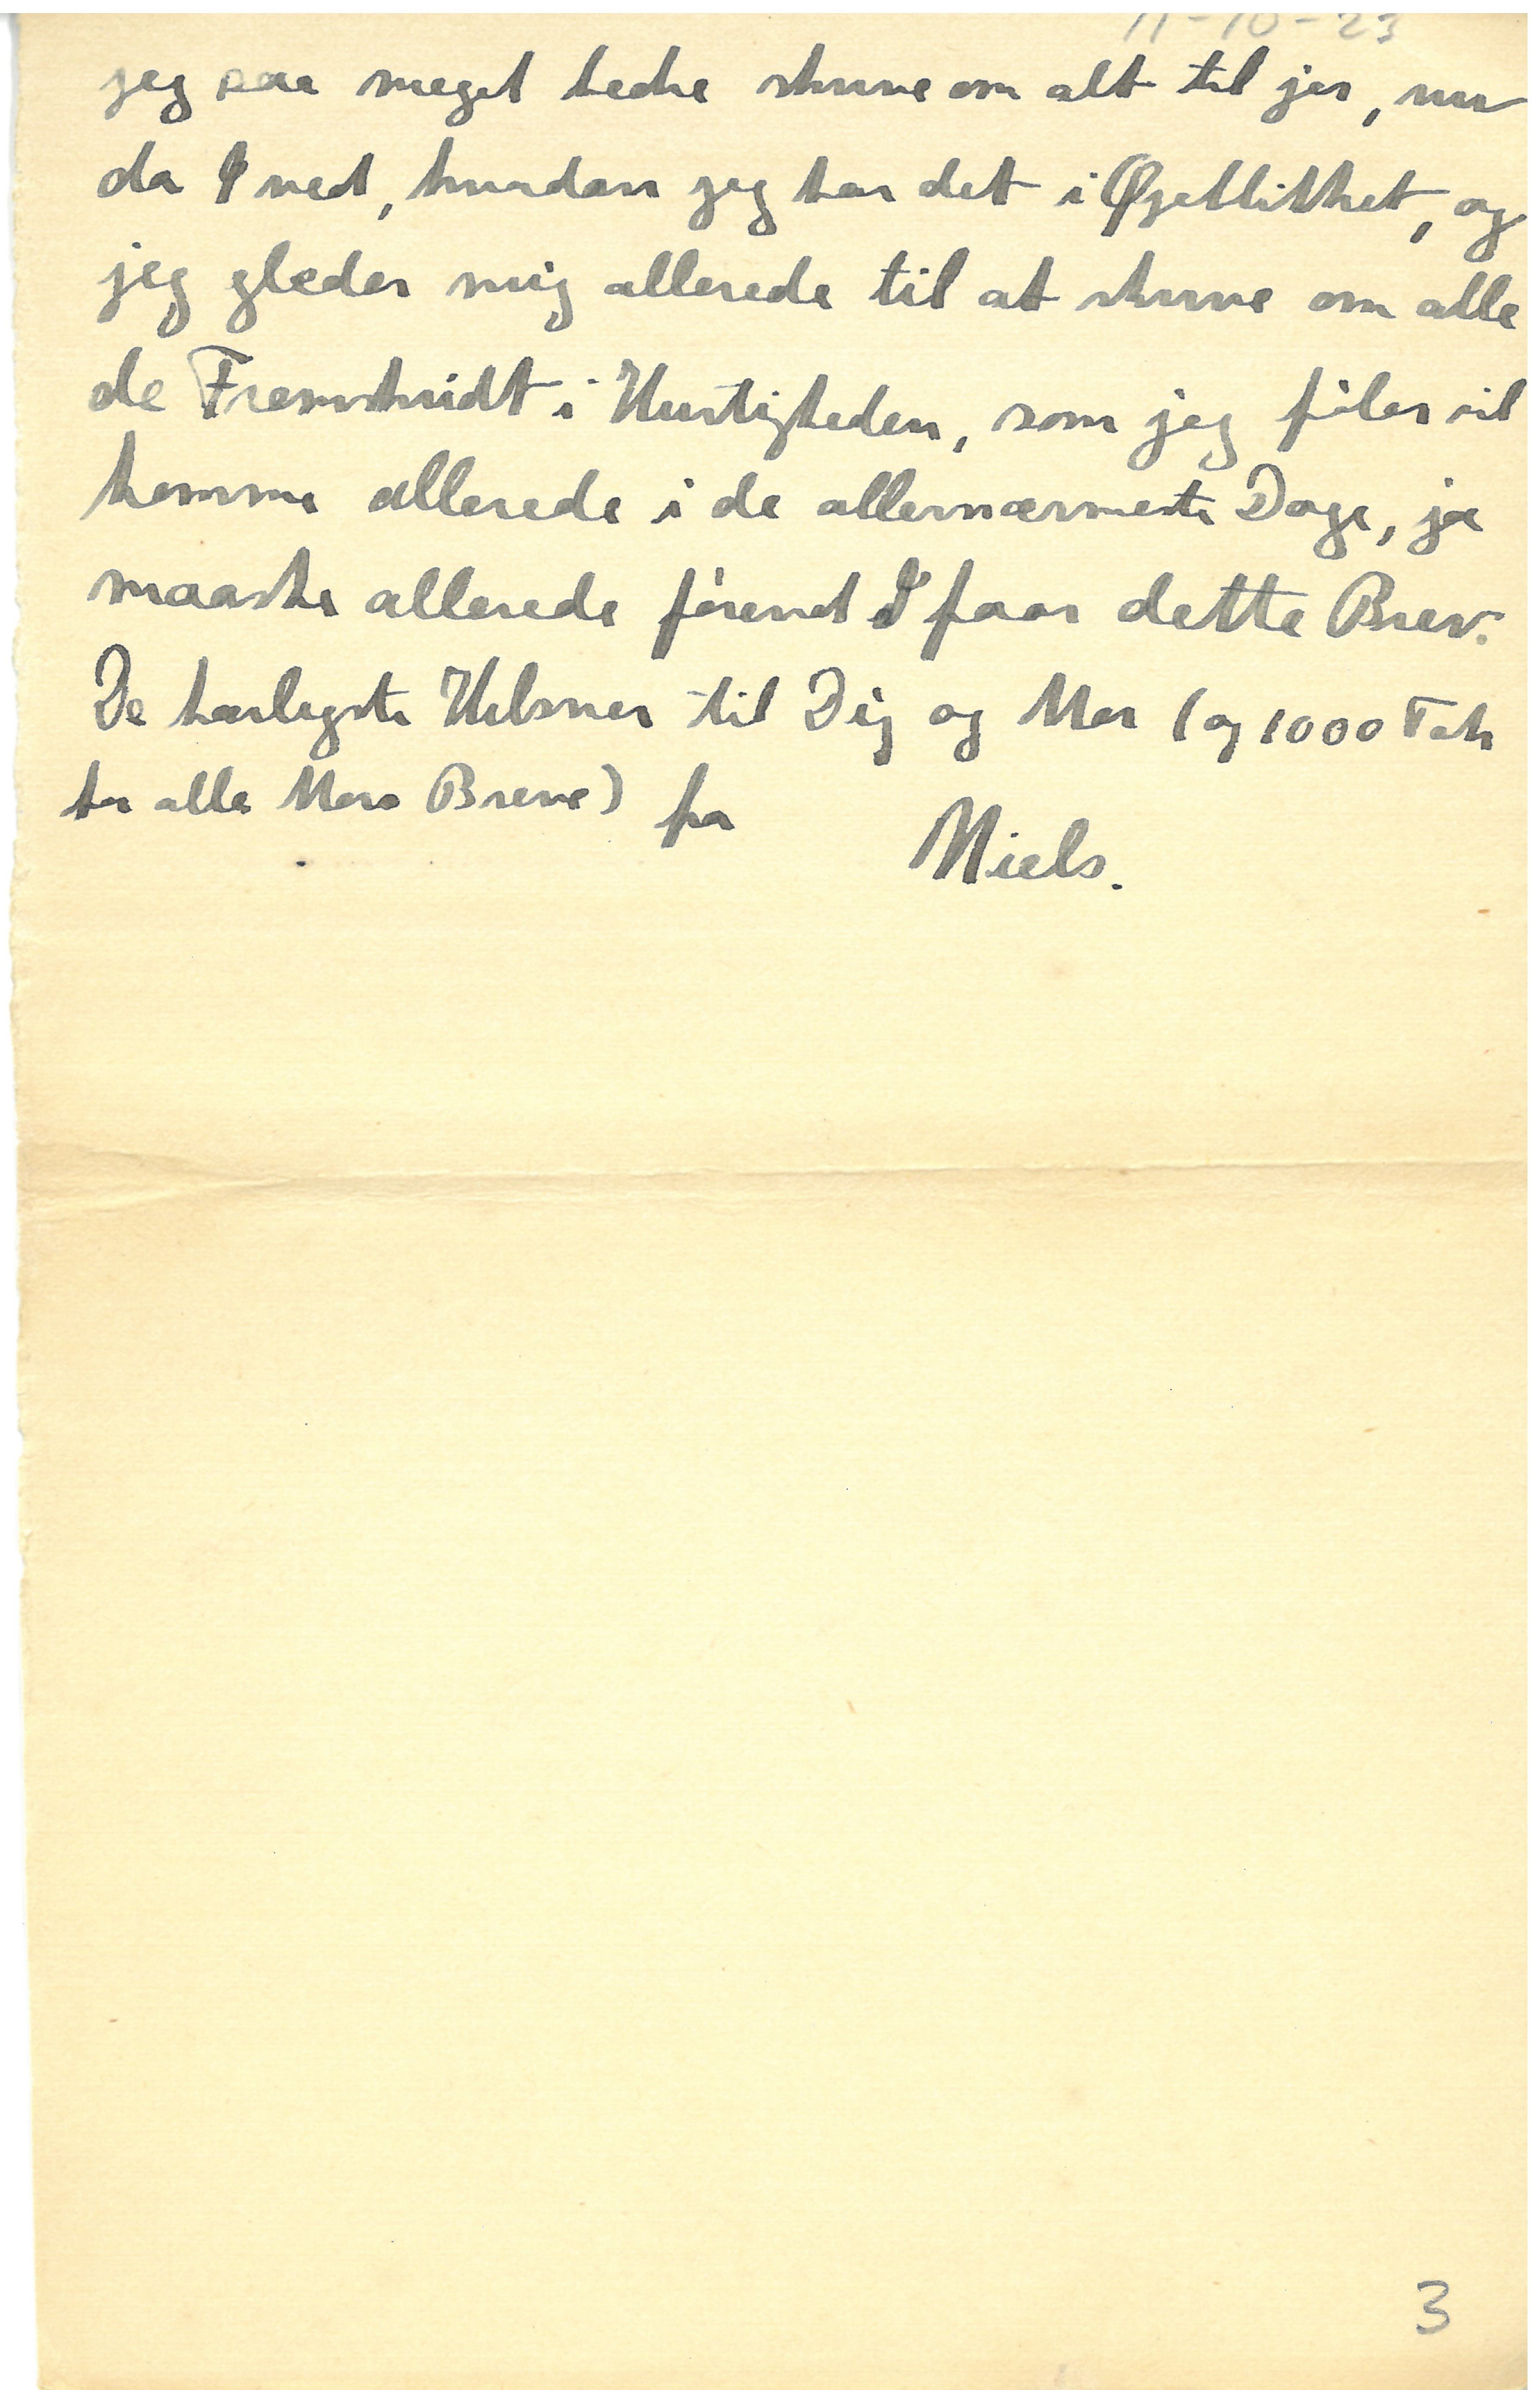 11-10-23
jeg saa meget bedre skrive om alt til jer, nu
da I ved, hvordan jeg har det i Øjeblikket, og
jeg glæder mig allerede til at skrive om alle
de Fremskridt i Hurtigheden, som jeg føler vil
komme allerede i de allernærmeste Dage, ja
maaske allerede førend I faar dette Brev.
De kærligste Hilsner til Dig og Mor (og 1000 Tak
for alle Mors Breve) fra
Niels.
3